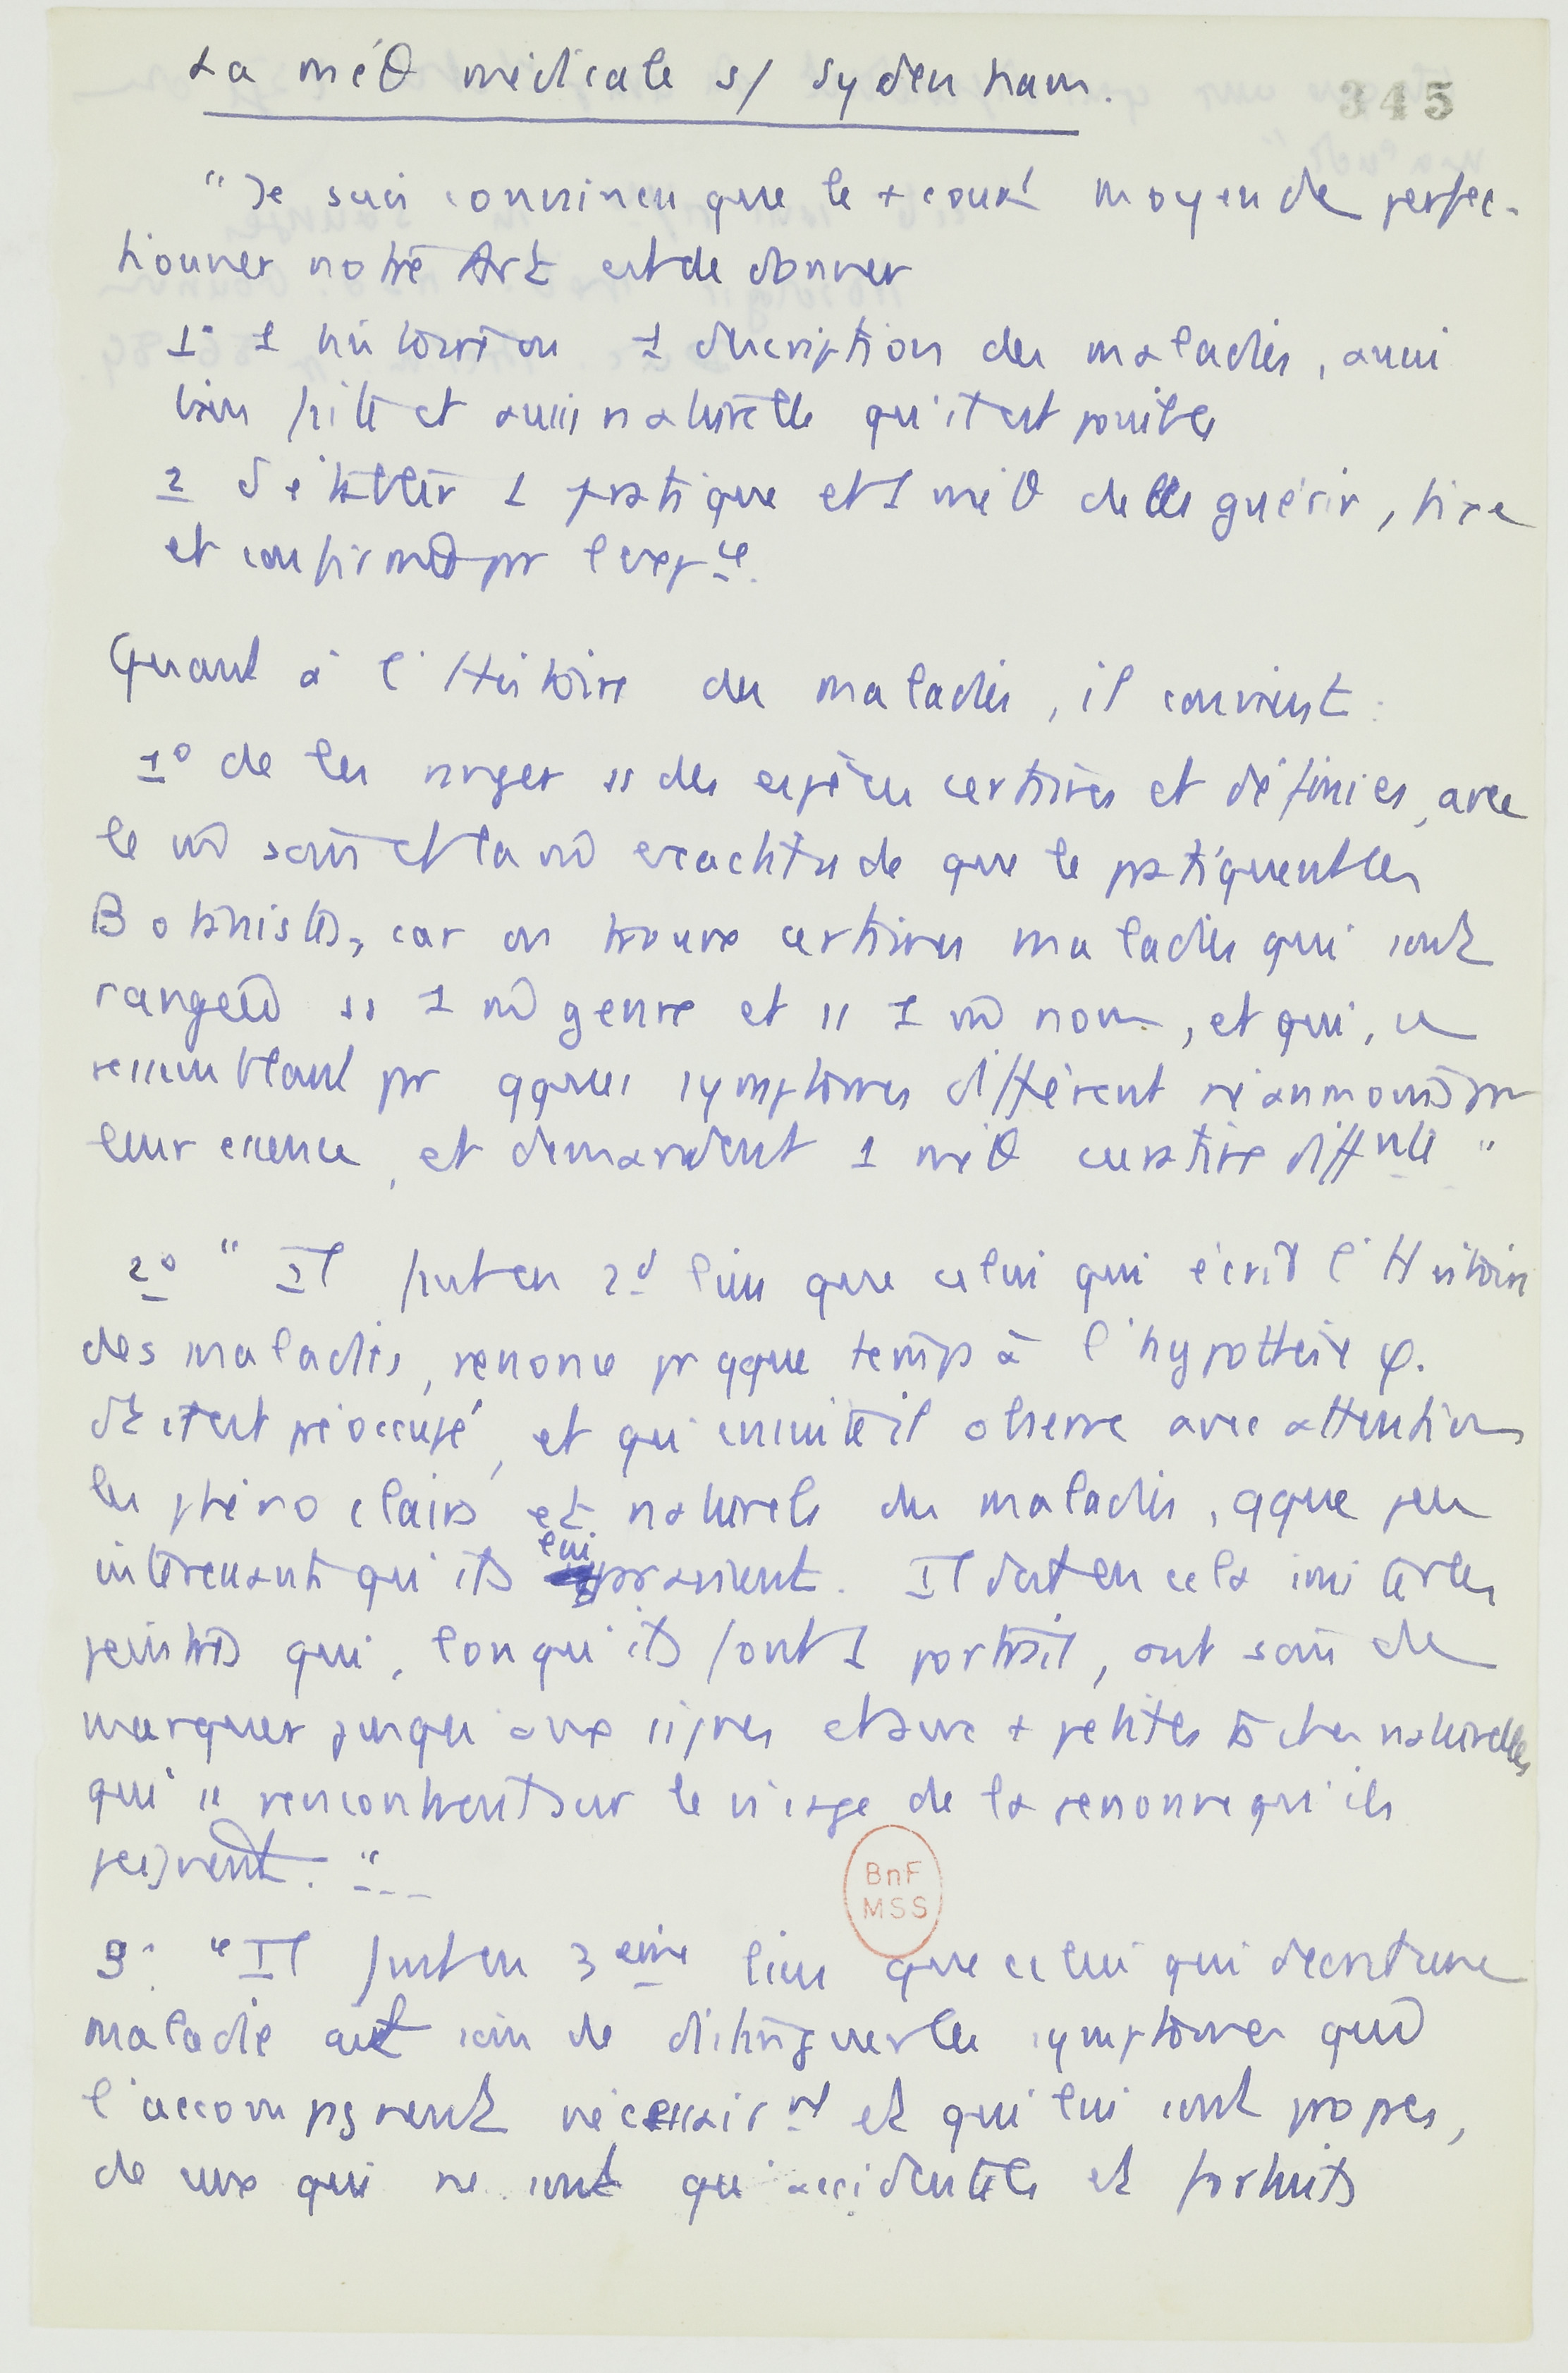 La méθ médicale s/ Sydenham.
345
"Je suis convaincu que le + court moyen de perfec-
tionner notre Art est de donner
1° 1 histoire ou 1 description des maladies, aussi
bien faite et aussi naturelle qu'il est possible
2 d'établir 1 pratique et 1 méθ de les guérir, fixe
et confirmée par l'exp ce.
Quant à l'Histoire des maladies, il convient :
1° de les ranger ss des espèces certaines et définies, avec
le m̂ soin et la m̂ exactitude que le pratiquent les
Botanistes, car on trouve certaines maladies qui sont
rangées ss 1 m̂ genre et ss 1 m̂ nom, et qui, se
ressemblant par qques symptômes diffèrent néanmoins par
leur essence, et demandent 1 méθ curative diff nte "
2° " Il faut en 2d lieu que celui qui écrit l'Histoire
des maladies, renonce pr qque temps à l'hypothèse φ.
dt il est préoccupé, et qu'ensuite il observe avec attention
les phéno clairs et naturels des maladies, qque peu
intéressants qu'ils lui paraissent. Il doit en cela imiter les
peintres qui, lorsqu'ils font 1 portrait, ont soin de
marquer jusqu'aux signes et aux + petites taches naturelles
qui se rencontrent sur le visage de la personne qu'ils
peignent. "
3° "Il faut en 3 eme lieu que celui qui décrit une
maladie ait soin de distinguer les symptômes qui
l'accompagnent nécessair nt et qui lui sont propres,
de ceux qui ne sont qu'accidentels et fortuits
BnF
MSS